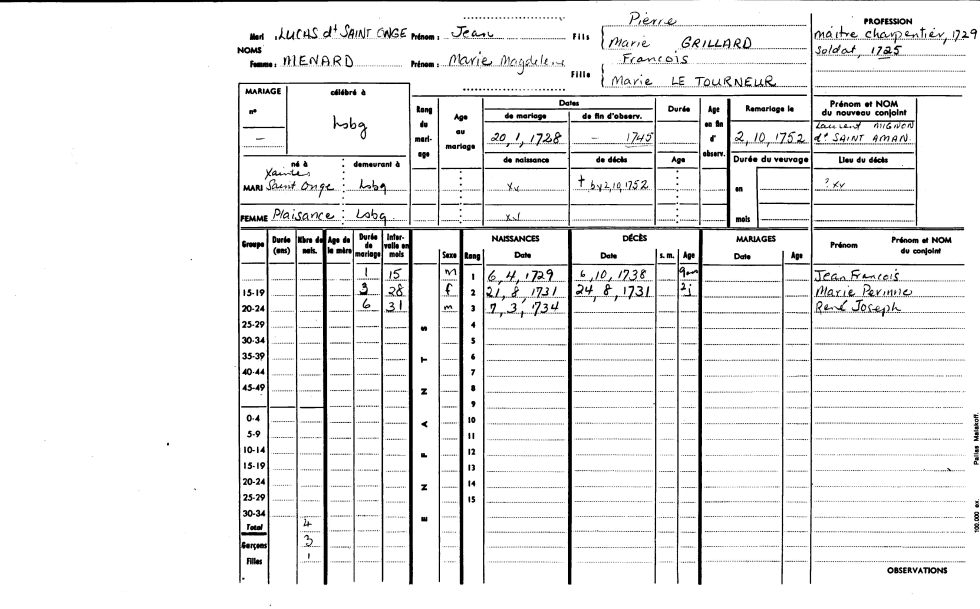 Pierre
PROFESSION
Mari : LUCAS dt SAINT ONGE Prénom : Jean Fils Marie GRILLARD maitre charpentier, 1729
NOMS
soldat, 1725
Femme : MENARD Prénom : Marie Magdeleine Fille Francois
Marie LE TOURNEUR
MARIAGE célébré à
n° Lsbg
—
Rang du mariage Age au mariage Dates Durée Age en fin d'observ. Remariage le Prénom et NOM du nouveau conjoint
de mariage de fin d'observ.
20, 1, 1728 – 1745 2, 10, 1752 Laurent MIGNON
dt SAINT AMAN
né à demeurant à de naissance de décès Age Durée du veuvage Lieu du décès
Xaintes
MARI Saint Onge : Lsbg xv + bv 2, 10, 1752 en ? xv
FEMME Plaisance : Lsbg xv mois
Groupe Durée (ans) Nbre de nais. Age de la mère Durée de mariage Intervalle en mois Sexe Rang NAISSANCES Date DÉCÈS Date s. m. Age MARIAGES Date Age Prénom Prénom et NOM du conjoint
ENFANTS
1 15 m 1 6, 4, 1729 6, 10, 1738 9 Jean Francois
15-19 3 28 f 2 21, 8, 1731 24, 8, 1731 3j Marie Perinne
20-24 6 31 m 3 7, 3, 1734 René Joseph
25-29 4
30-34 5
35-39 6
40-44 7
45-49 8
9
0-4 10
5-9 11
10-14 12
15-19 13
20-24 14
25-29 15
30-34
Total 4
Garçons 3
Filles 1
OBSERVATIONS
100.000 ex. Pailles Malakoff.